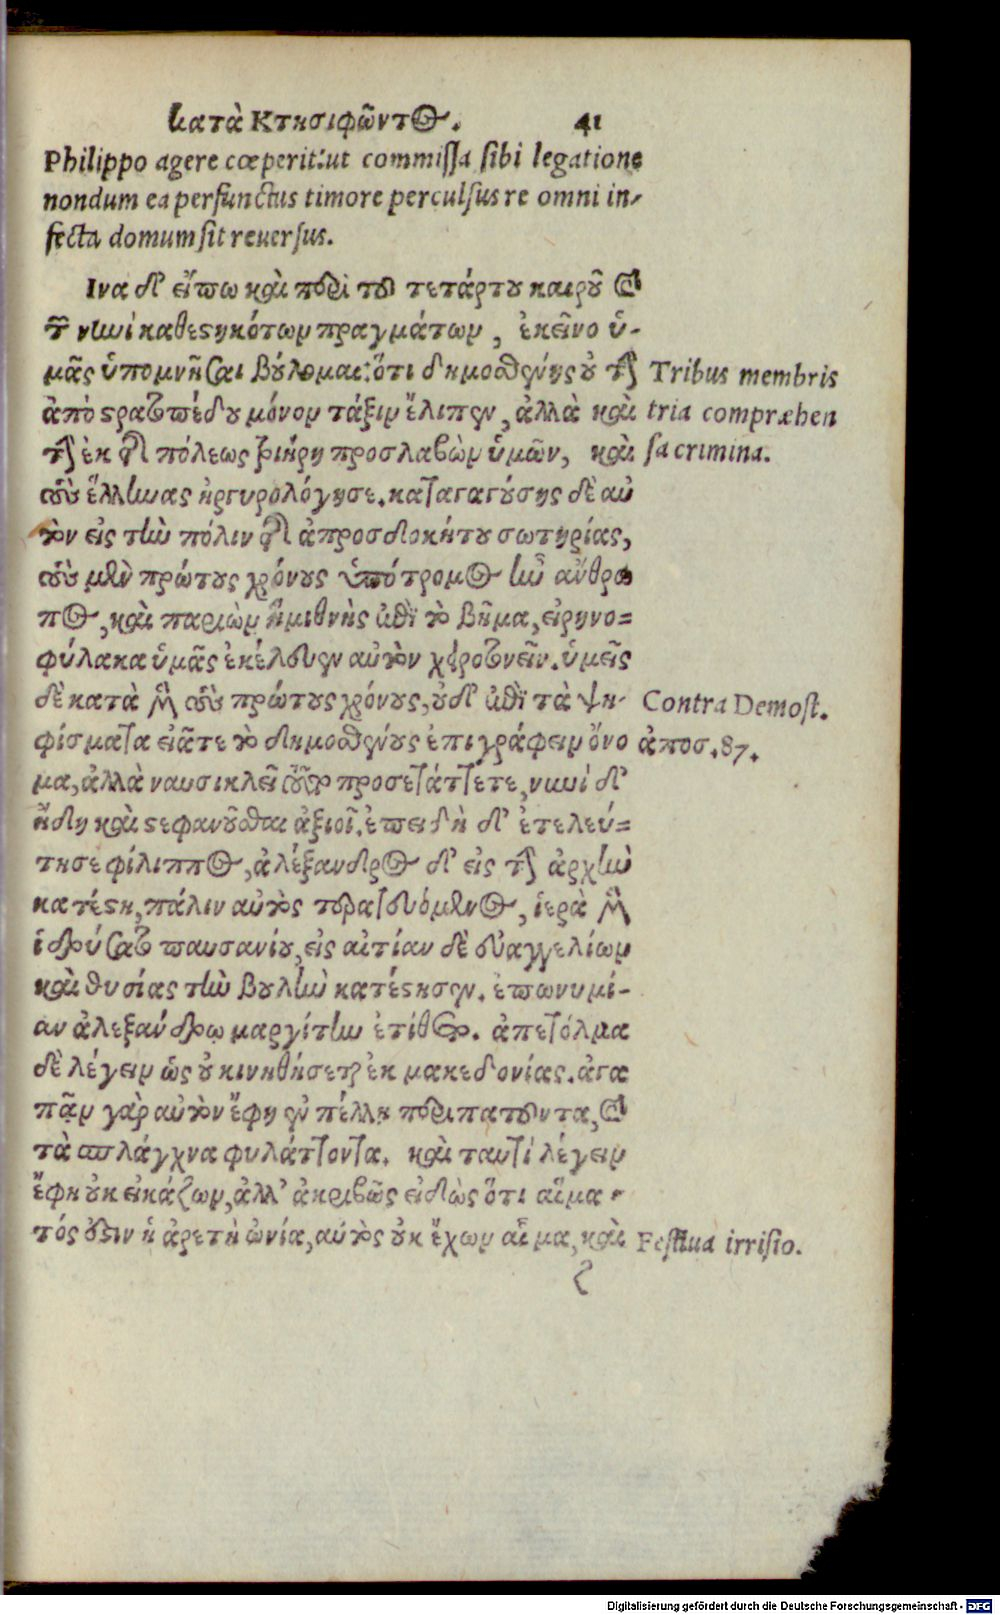 κατὰ Κτησιφῶντος.
41
Philippo agere cœperit:ut commiſſa ſibi legatione
nondum ea perfunctus timore perculſus re omni in-
fecta domum ſit reuerſus.
Ινα δ' εἴπω καὶ περὶ τοῦ τετάρτου καιροῦ καὶ
τῶν νυνὶ καθεστηκότων πραγμάτων, ἐκεῖνο ὑ-
μᾶς ὑπομνῆσαι βούλομαι: ὅτι δημοσθένης οὐ τὴν
ἀπὸ στρατοπέδου μόνον τάξιν ἔλιπεν, ἀλλὰ καὶ
τὴν ἐκ τῆς πόλεως τριήρη προσλαβὼν ὑμῶν, καὶ
τοὺς ἕλληνας ἠργυρολόγησε. καταγαγούσης δὲ αὐ
τὸν εἰς τὴν πόλιν τῆς ἀπροσδοκήτου σωτηρίας,
τοὺς μὲν πρώτους χρόνους ὑπότρομος ἦν ἄνθρω
πος, καὶ παριὼν ἡμιθνὴς ἐπὶ τὸ βῆμα, εἰρηνο=
φύλακα ὑμᾶς ἐκέλευεν αὐτὸν χειροτονεῖν. ὑμεῖς
δὲ κατὰ μὲν τοὺς πρώτους χρόνους, οὐδ' ἐπὶ τὰ ψη-
φίσματα εἰᾶτε τὸ δημοσθένους ἐπιγράφειν ὄνο
μα, ἀλλὰ ναυσικλεῖ τοῦτο προσετάττετε, νυνὶ δ'
ἤδη καὶ στεφανοῦσθαι ἀξιοῖ. ἐπειδὴ δ' ἐτελεύ=
τησε φίλιππος, ἀλέξανδρος δ' εἰς τὴν ἀρχὴν
κατέστη, πάλιν αὐτὸς τερατευόμενος, ἱερὰ μὲν
ἱδρύσατο παυσανίου, εἰς αἰτίαν δὲ εὐαγγελίων
καὶ θυσίας τὴν βουλὴν κατέστησεν. ἐπωνυμί-
αν ἀλεξάνδρῳ μαργίτην ἐτίθετο. ἀπετόλμα
δὲ λέγειν ὡς οὐ κινηθήσεται ἐκ μακεδονίας. ἀγα
πᾷν γὰρ αὐτὸν ἔφη ἐν πέλλῃ περιπατοῦντα, καὶ
τὰ σπλάγχνα φυλάττοντα. καὶ ταυτὶ λέγειν
ἔφη οὐκ εἰκάζων, ἀλλ' ἀκριβῶς εἰδὼς ὅτι αἵμα-
τός ἐστιν ἡ ἀρετὴ ὠνία, αὐτὸς οὐκ ἔχων αἷμα, καὶ
Tribus membris
tria compræhen
ſa crimina.
Contra Demoſt.
ἀποσ. 87.
Feſtiua irriſio.
Digitalisierung gefördert durch die Deutsche Forschungsgemeinschaft - DFG